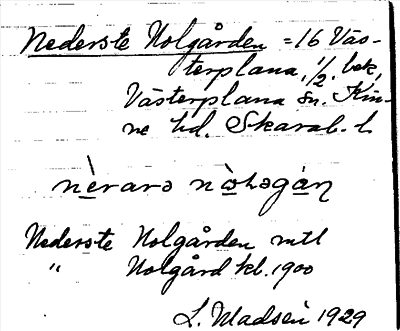 Nederste Nolgården = 16 Väs-
terplana, 1/2. bek,
Västerplana sn. Kin-
ne hd. Skarab. l.
nèrarə nò̱ɫəgán̥
Nederste Nolgården mtl
" Nolgård kl. 1900
L. Madsén 1929